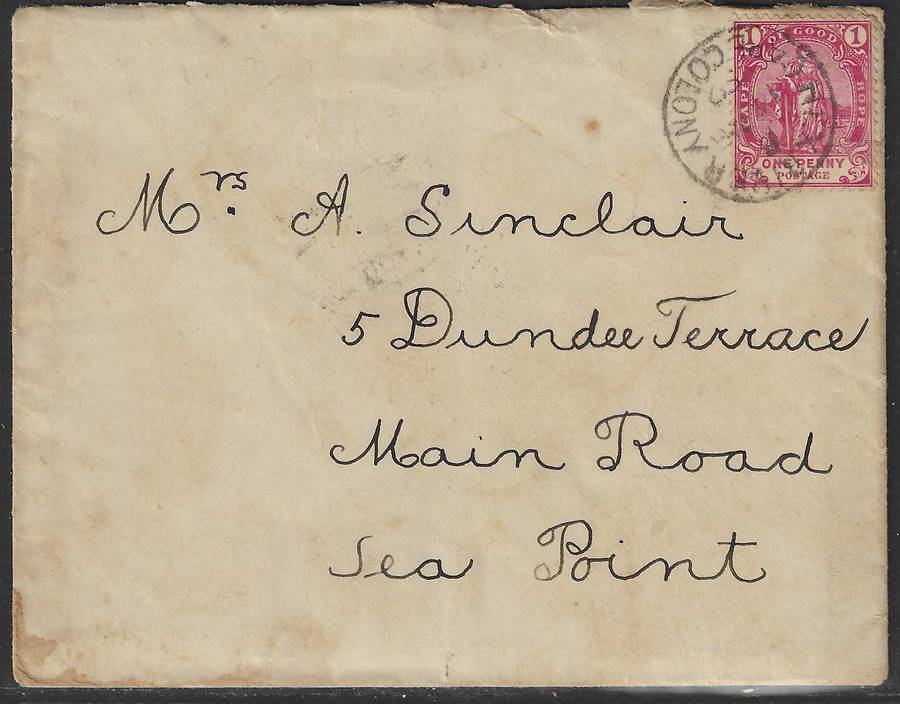 1 OF GOOD 1
CAPE HOPE
ONE PENNY
POSTAGE
COLONY
Mrs. A. Sinclair
5 Dundee Terrace
Main Road
Sea Point